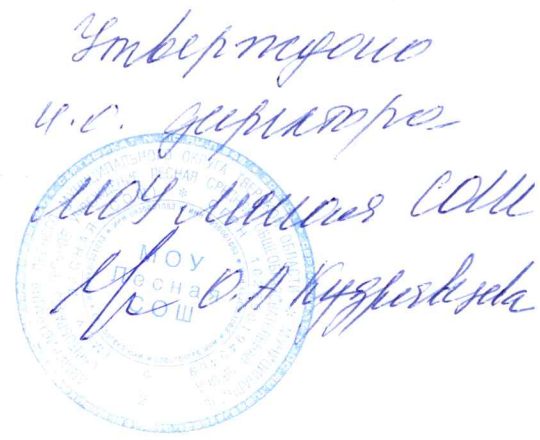 Утверждено
и.о. директора
МОУ Лесная СОШ
О.А Кудрявцева
МОУ
Лесная
СОШ